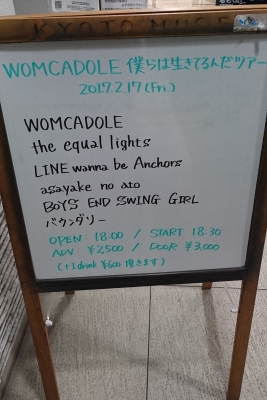 KYOTO MUSE
WOMCADOLE 僕らは生きてるんだツアー
2017.2.17(Fri.)
WOMCADOLE
the equal lights
LINE wanna be Anchors
asayake no ato
BOYS END SWING GIRL
バウンダリー
OPEN 18:00 / START 18:30
ADV ¥2,500 / DOOR ¥3,000
(+1drink ¥600 頂きます)